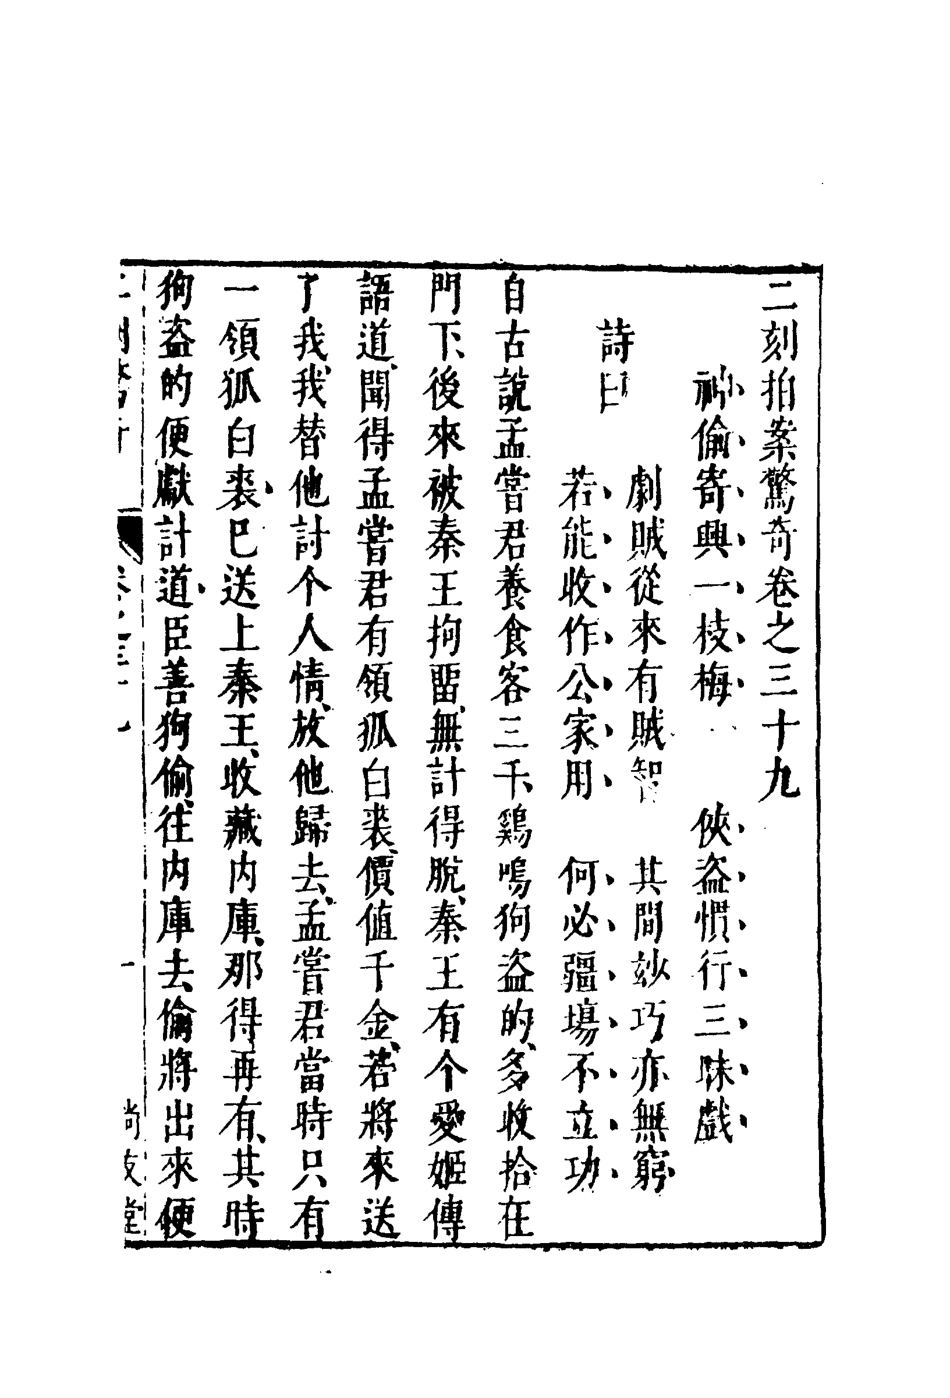 二刻拍案驚奇卷之三十九
神偷寄興一枝梅　俠盜慣行三昧戲
詩曰
劇賊從來有賊智　其間玅巧亦無窮
若能收作公家用　何必疆場不立功
自古說孟嘗君養食客三千、鷄鳴狗盜的、多收拾在
門下、後來被秦王拘畱、無計得脫、秦王有个愛姬傳
語道、聞得孟嘗君有領狐白裘、價值千金、若將來送
了我、我替他討个人情、放他歸去、孟嘗君當時只有
一領狐白裘、巳送上秦王、收藏內庫、那得再有、其時
狗盜的便獻計道、臣善狗偷、往內庫去偷將出來便
二刻驚奇　卷之三十九　一　尚友堂